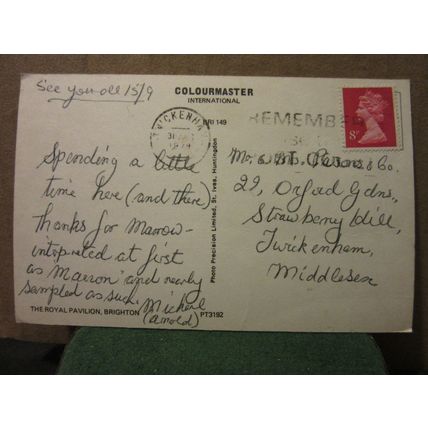 See you all 15/9
COLOURMASTER
INTERNATIONAL
BRI 149
TWICKENHAM
1979
REMEMBER
8P
Spending a little
time here (and there)
thanks for Marrow -
intrepreted at first
as "Marron" and nearly
sampled as such.
Michael
(Arnold)
Photo Precision Limited, St. Ives, Huntingdon
Mr. & Co.
29, Oxford Gdns,
Strawberry Hill,
Twickenham,
Middlesex
THE ROYAL PAVILION, BRIGHTON
PT3192